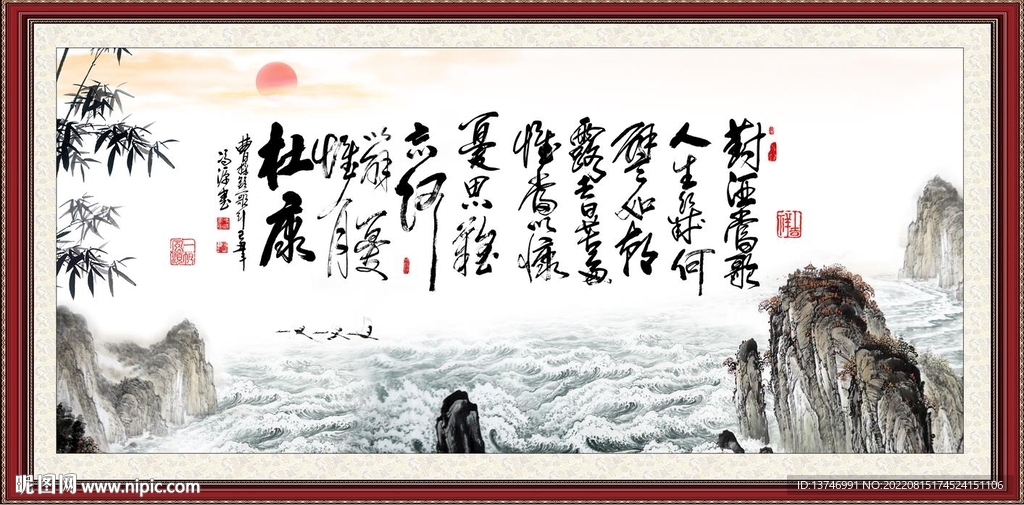 對酒當歌
人生幾何
譬如朝
露去日苦多
慨當以慷
憂思難
忘何
以解憂
惟有
杜康
曹操短歌行
吉祥
一帆風順
昵图网 www.nipic.com
ID:13746991 NO:20220815174524151106